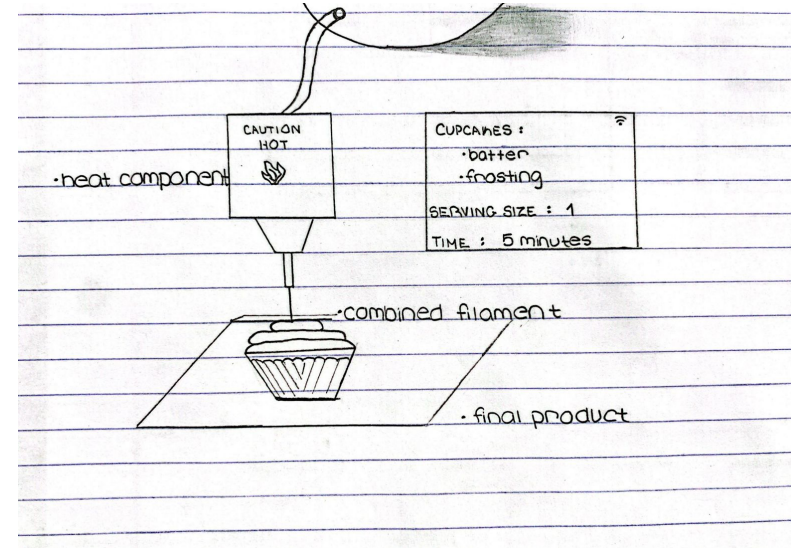 CAUTION
HOT
·heat component
CUPCAKES :
·batter
·frosting
SERVING SIZE : 1
TIME : 5 minutes
·combined filament
· final product